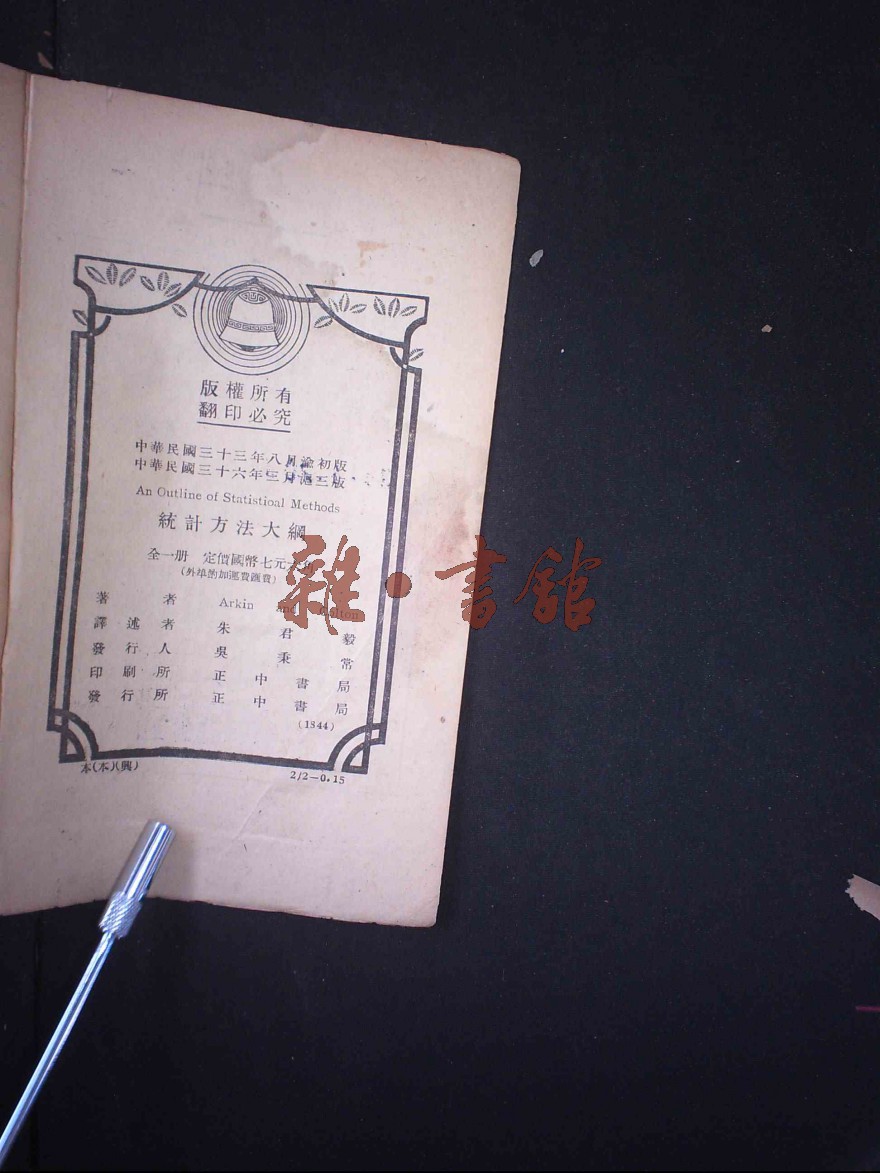 版權所有
翻印必究
中華民國三十三年八月渝初版
中華民國三十六年三月滬三版
An Outline of Statistical Methods
統計方法大綱
全一册 定價國幣七元
(外埠酌加運費匯費)
著者 Arkin and Colton
譯述者 朱君毅
發行人 吳秉常
印刷所 正中書局
發行所 正中書局
(1844)
本(本八興)
2/2—0.15
雜·書館